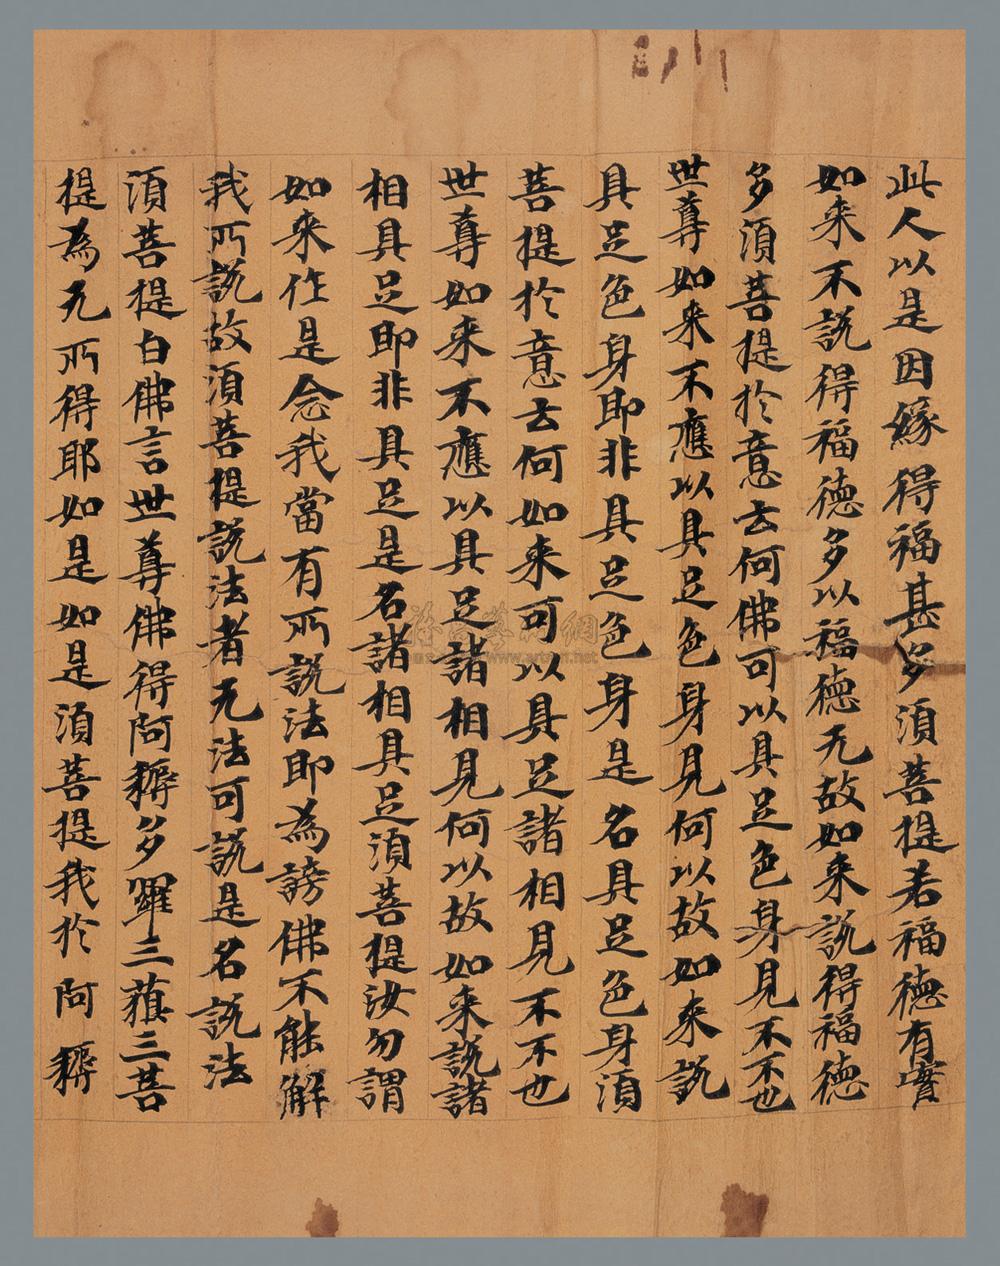 此人以是因緣得福甚多須菩提若福德有實
如来不說得福德多以福德无故如来說得福德
多須菩提於意云何佛可以具足色身見不不也
世尊如来不應以具足色身見何以故如来說
具足色身即非具足色身是名具足色身須
菩提於意云何如来可以具足諸相見不不也
世尊如来不應以具足諸相見何以故如来說諸
相具足即非具足是名諸相具足須菩提汝勿謂
如来作是念我當有所說法即為謗佛不能解
我所說故須菩提說法者无法可說是名說法
須菩提白佛言世尊佛得阿耨多羅三藐三菩
提為无所得耶如是如是須菩提我於阿耨
www.artron.net